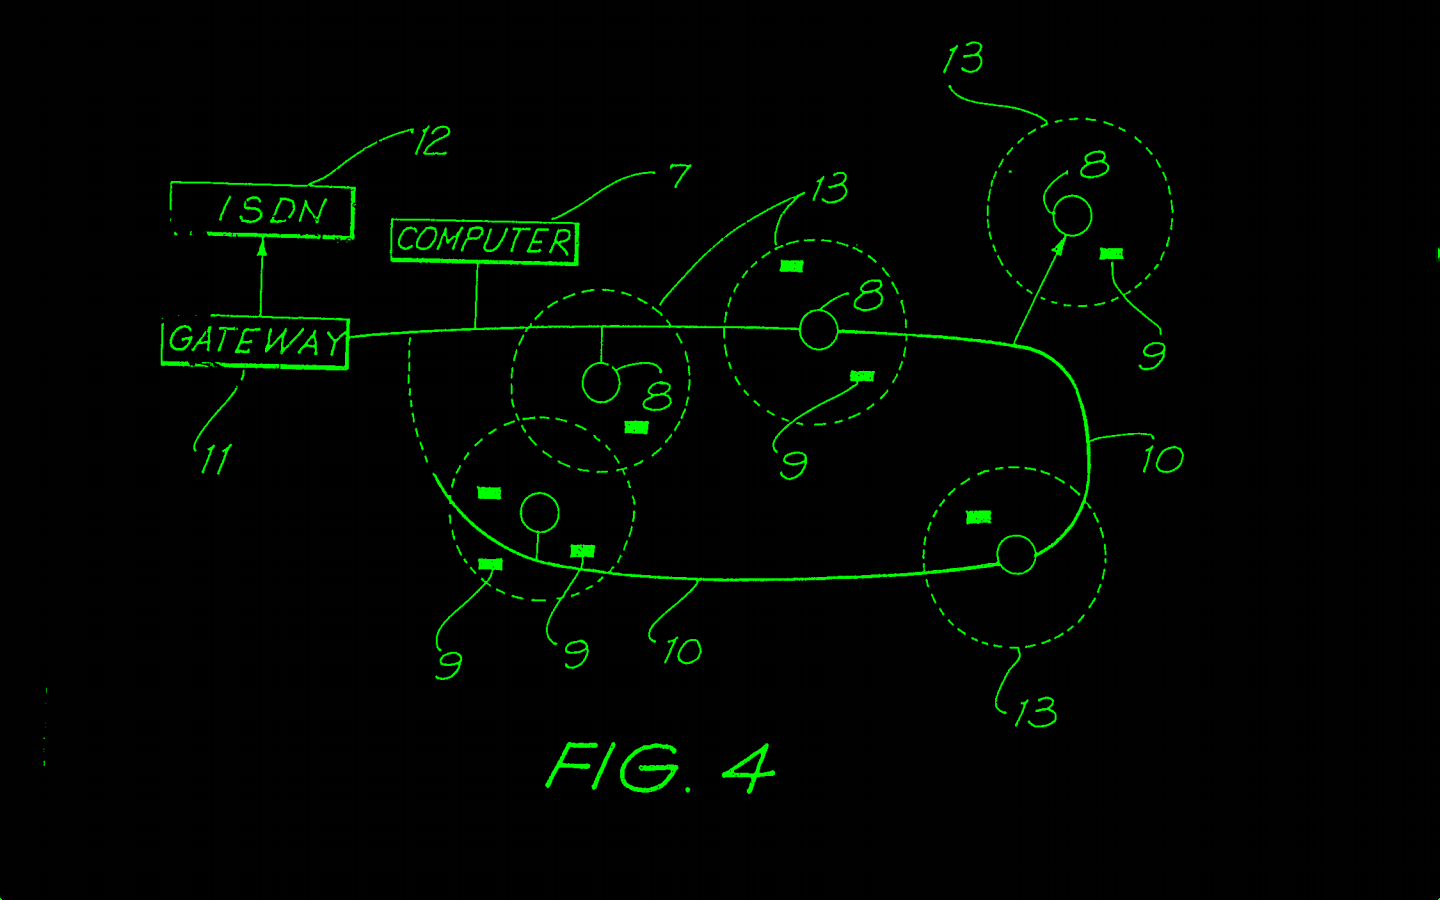 13
12
7
13
ISDN
COMPUTER
8
8
GATEWAY
9
8
11
9
10
9
9
10
13
FIG. 4